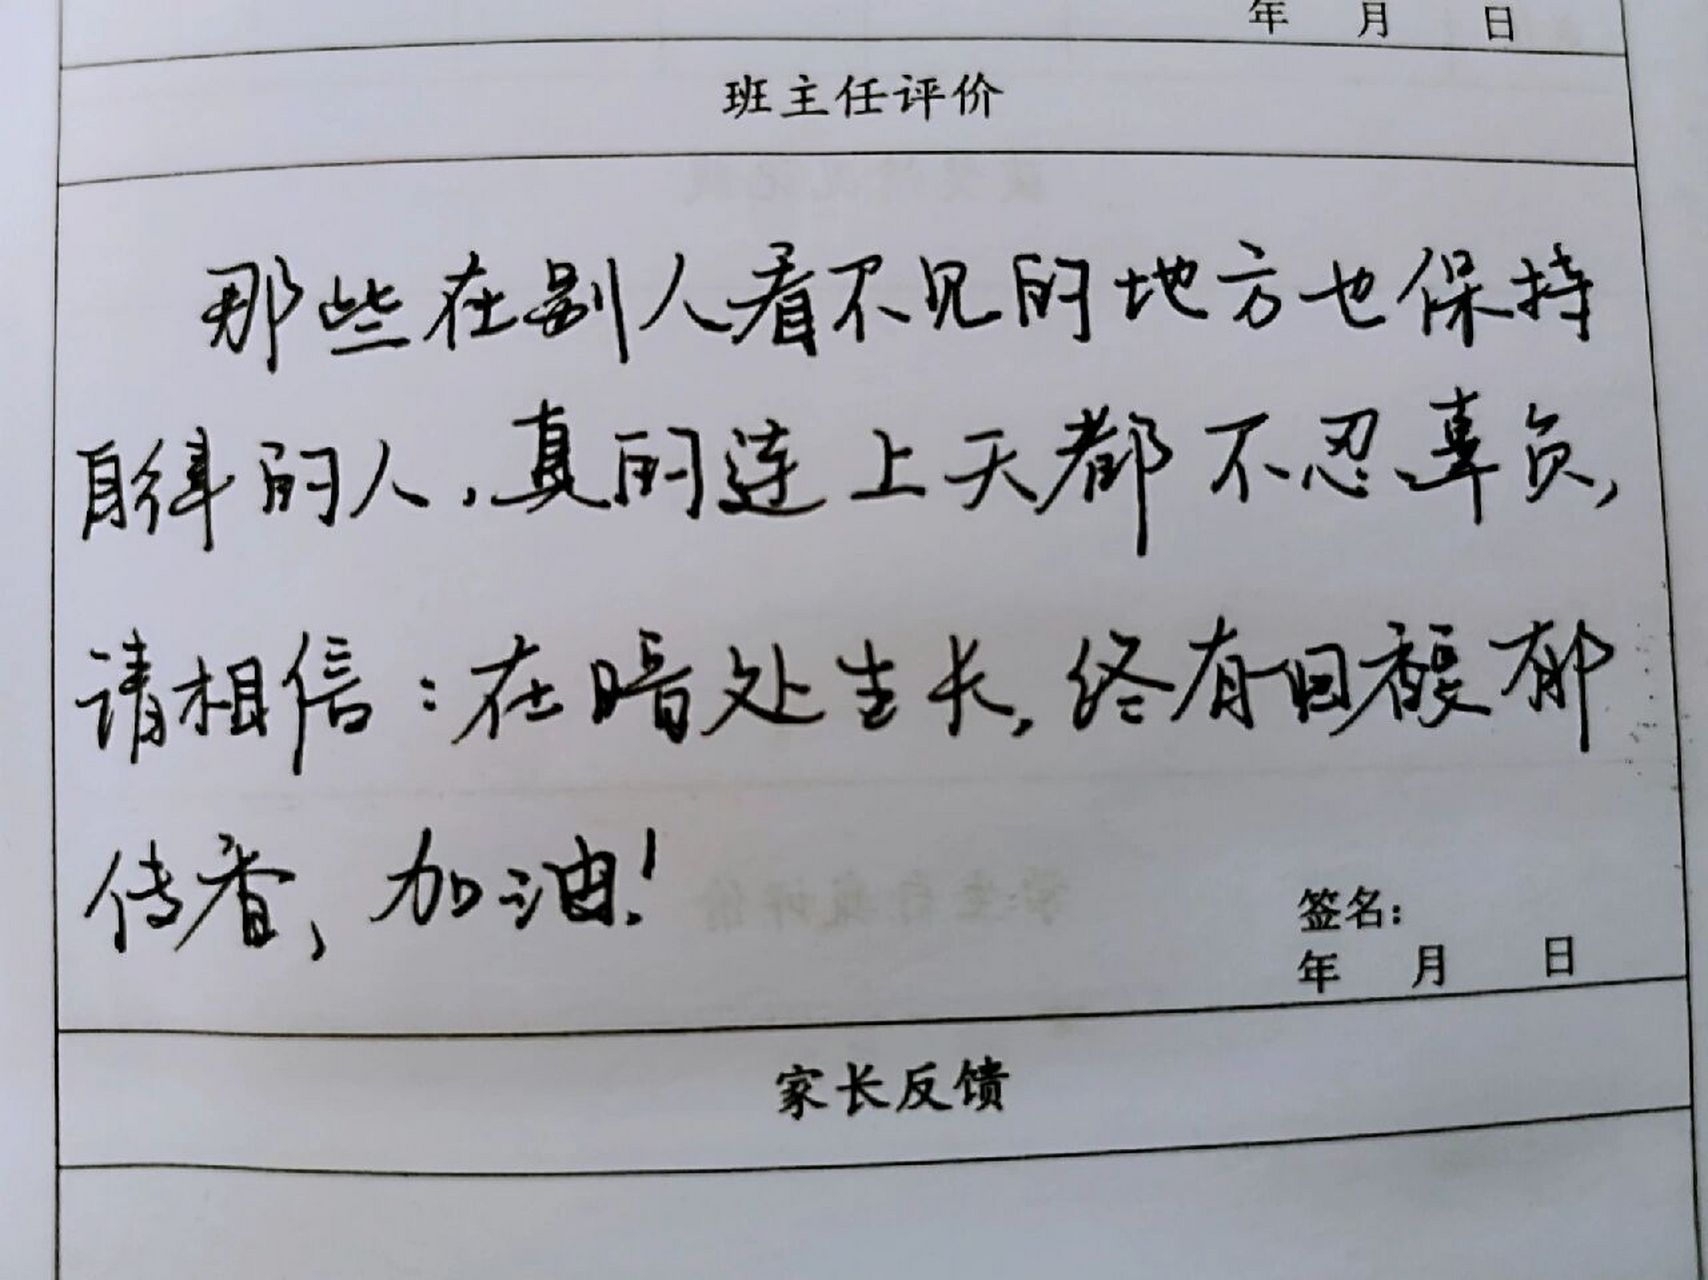 年 月 日
班主任评价
那些在别人看不见的地方也保持
自律的人,真的连上天都不忍辜负,
请相信:在暗处生长,终有日馥郁
传香,加油!
签名:
年 月 日
家长反馈